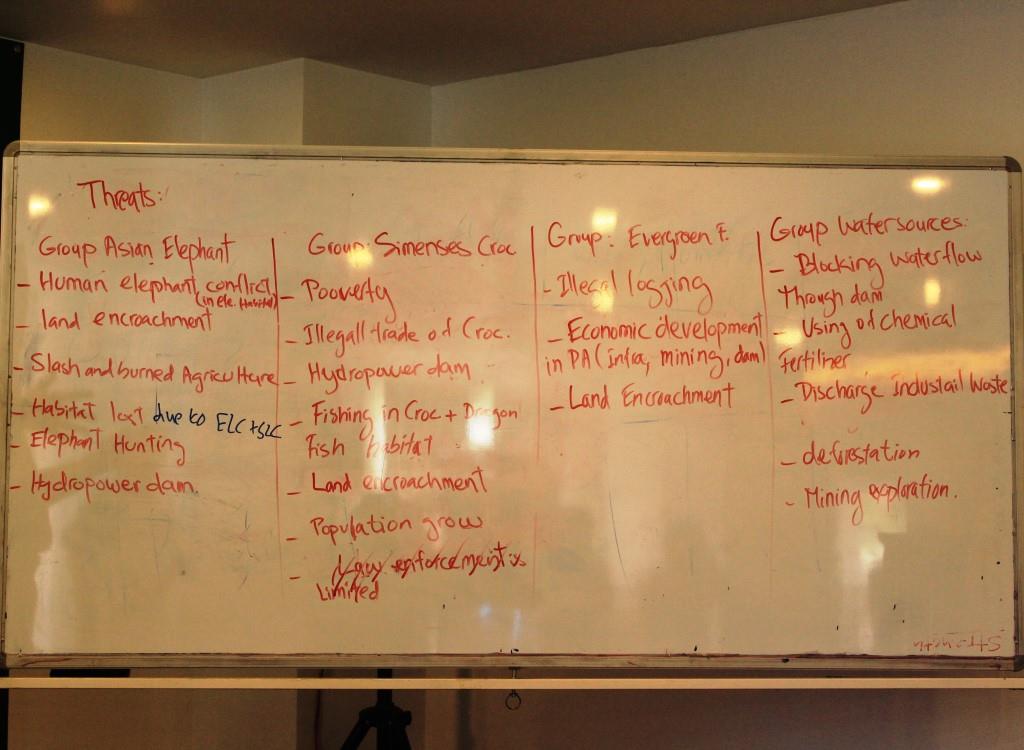 Threats:
Group Asian Elephant
- Human elephant conflict
(in ele. Habitat)
- land encroachment
- Slash and burned Agriculture
- Habitat lost due to ELC + SLC
- Elephant Hunting
- Hydropower dam.
Group: Simenses Croc
- Pooverty
- Illegall trade of Croc.
- Hydropower dam
- Fishing in Croc + Dragon
Fish habitat
- Land encroachment
- Population grow
- enforcement is
Limited
Group: Evergreen F.
- Illegal logging
- Economic development
in PA (infra, mining, dam)
- Land Encroachment
Group Watersources:
- Blocking waterflow
Through dam
- Using of chemical
Fertiliner
- Discharge Industail Waste
- deforestation
- Mining exploration.